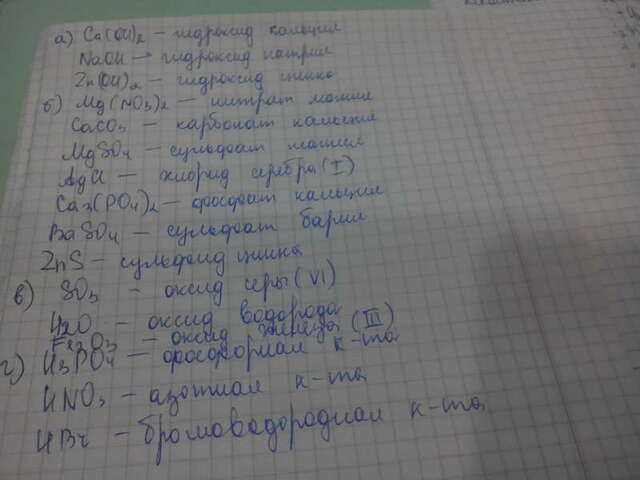 а) Ca(OH)2 – гидроксид кальция
NaOH – гидроксид натрия
Zn(OH)2 – гидроксид цинка
б) Mg(NO3)2 – нитрат магния
CaCO3 – карбонат кальция
MgSO4 – сульфат магния
AgCl – хлорид серебра (I)
Ca3(PO4)2 – фосфат кальция
BaSO4 – сульфат бария
ZnS – сульфид цинка
в) SO3 – оксид серы (VI)
H2O – оксид водорода
Fe2O3 – оксид железа (III)
г) H3PO4 – фосфорная к-та
HNO3 – азотная к-та
HBr – бромоводородная к-та